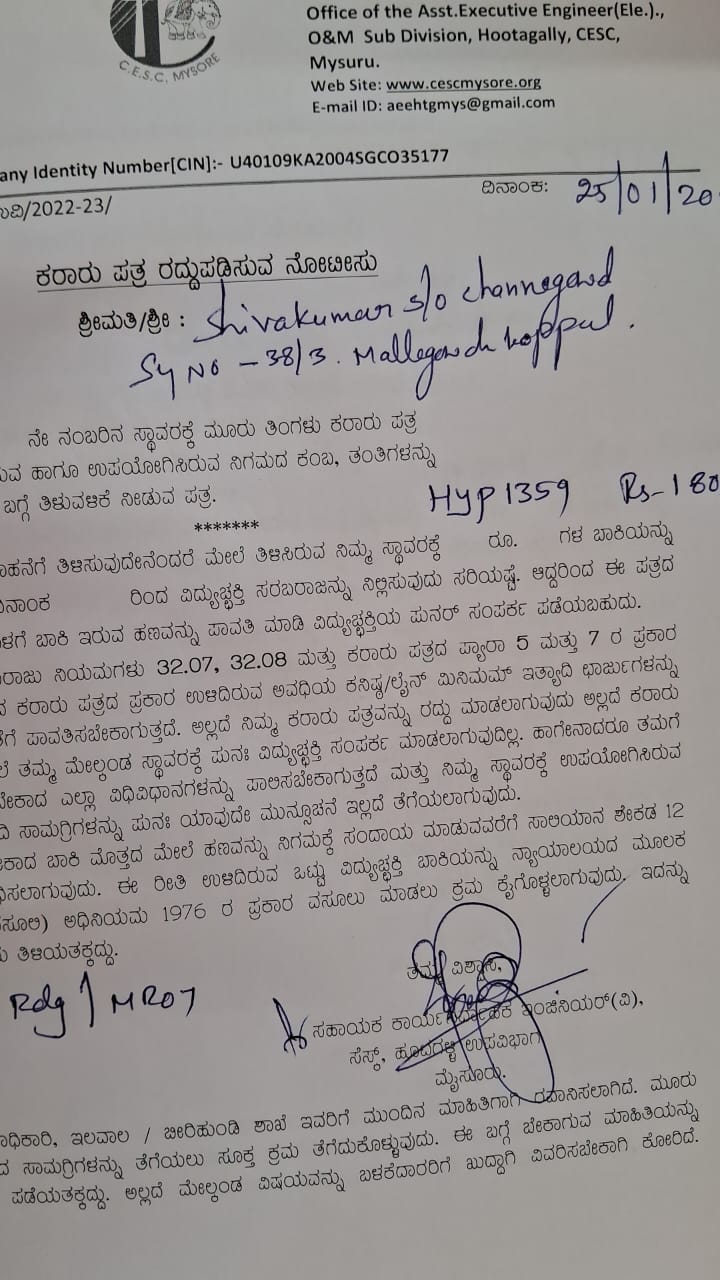 C.E.S.C, MYSORE
Office of the Asst.Executive Engineer(Ele.).,
O&M Sub Division, Hootagally, CESC,
Mysuru.
Web Site: www.cescmysore.org
E-mail ID: aeehtgmys@gmail.com
any Identity Number[CIN]:- U40109KA2004SGCO35177
ುವಿ/2022-23/
ದಿನಾಂಕ: 25/01/20
ಕರಾರು ಪತ್ರ ರದ್ದುಪಡಿಸುವ ನೋಟೀಸು
ಶ್ರೀಮತಿ/ಶ್ರೀ : Shivakumar s/o channegowd
Sy No - 38/3. Mallegowda koppal.
ನೇ ನಂಬರಿನ ಸ್ಥಾವರಕ್ಕೆ ಮೂರು ತಿಂಗಳು ಕರಾರು ಪತ್ರ
ುವ ಹಾಗೂ ಉಪಯೋಗಿಸಿರುವ ನಿಗಮದ ಕಂಬ, ತಂತಿಗಳನ್ನು
ಬಗ್ಗೆ ತಿಳುವಳಿಕೆ ನೀಡುವ ಪತ್ರ.
HYP1359 Rs-180
*******
ಾಹನೆಗೆ ತಿಳಿಸುವುದೇನೆಂದರೆ ಮೇಲೆ ತಿಳಿಸಿರುವ ನಿಮ್ಮ ಸ್ಥಾವರಕ್ಕೆ ರೂ. ಗಳ ಬಾಕಿಯನ್ನು
ದಿನಾಂಕ ರಿಂದ ವಿದ್ಯುಚ್ಛಕ್ತಿ ಸರಬರಾಜನ್ನು ನಿಲ್ಲಿಸುವುದು ಸರಿಯಷ್ಟೆ. ಆದ್ದರಿಂದ ಈ ಪತ್ರದ
ಳಗೆ ಬಾಕಿ ಇರುವ ಹಣವನ್ನು ಪಾವತಿ ಮಾಡಿ ವಿದ್ಯುಚ್ಛಕ್ತಿಯ ಪುನರ್ ಸಂಪರ್ಕ ಪಡೆಯಬಹುದು.
ರಾಜು ನಿಯಮಗಳು 32.07, 32.08 ಮತ್ತು ಕರಾರು ಪತ್ರದ ಪ್ಯಾರಾ 5 ಮತ್ತು 7 ರ ಪ್ರಕಾರ
ಕರಾರು ಪತ್ರದ ಪ್ರಕಾರ ಉಳಿದಿರುವ ಅವಧಿಯ ಕನಿಷ್ಠ/ಲೈನ್ ಮಿನಿಮಮ್ ಇತ್ಯಾದಿ ಛಾರ್ಜುಗಳನ್ನು
ಗೆ ಪಾವತಿಸಬೇಕಾಗುತ್ತದೆ. ಅಲ್ಲದೆ ನಿಮ್ಮ ಕರಾರು ಪತ್ರವನ್ನು ರದ್ದು ಮಾಡಲಾಗುವುದು ಅಲ್ಲದೆ ಕರಾರು
ಲೆ ತಮ್ಮ ಮೇಲ್ಕಂಡ ಸ್ಥಾವರಕ್ಕೆ ಪುನಃ ವಿದ್ಯುಚ್ಛಕ್ತಿ ಸಂಪರ್ಕ ಮಾಡಲಾಗುವುದಿಲ್ಲ. ಹಾಗೇನಾದರೂ ತಮಗೆ
ಬೇಕಾದ ಎಲ್ಲಾ ವಿಧಿವಿಧಾನಗಳನ್ನು ಪಾಲಿಸಬೇಕಾಗುತ್ತದೆ ಮತ್ತು ನಿಮ್ಮ ಸ್ಥಾವರಕ್ಕೆ ಉಪಯೋಗಿಸಿರುವ
ಿ ಸಾಮಗ್ರಿಗಳನ್ನು ಪುನಃ ಯಾವುದೇ ಮುನ್ಸೂಚನೆ ಇಲ್ಲದೆ ತೆಗೆಯಲಾಗುವುದು.
ಕಾದ ಬಾಕಿ ಮೊತ್ತದ ಮೇಲೆ ಹಣವನ್ನು ನಿಗಮಕ್ಕೆ ಸಂದಾಯ ಮಾಡುವವರೆಗೆ ಸಾಲಿಯಾನ ಶೇಕಡ 12
ಸಲಾಗುವುದು. ಈ ರೀತಿ ಉಳಿದಿರುವ ಒಟ್ಟು ವಿದ್ಯುಚ್ಛಕ್ತಿ ಬಾಕಿಯನ್ನು ನ್ಯಾಯಾಲಯದ ಮೂಲಕ
ಸೂಲಿ) ಅಧಿನಿಯಮ 1976 ರ ಪ್ರಕಾರ ವಸೂಲು ಮಾಡಲು ಕ್ರಮ ಕೈಗೊಳ್ಳಲಾಗುವುದು. ಇದನ್ನು
ತಿಳಿಯತಕ್ಕದ್ದು.
ತಮ್ಮ ವಿಶ್ವಾಸಿ,
Rdg 1 MR07
ಸಹಾಯಕ ಕಾರ್ಯನಿರ್ವಾಹಕ ಇಂಜಿನಿಯರ್(ವಿ),
ಸೆಸ್ಕ್, ಹೂಟಗಳ್ಳಿ ಉಪವಿಭಾಗ
ಮೈಸೂರು.
ಾಧಿಕಾರಿ, ಇಲವಾಲ / ಬೀರಿಹುಂಡಿ ಶಾಖೆ ಇವರಿಗೆ ಮುಂದಿನ ಮಾಹಿತಿಗಾಗಿ ರವಾನಿಸಲಾಗಿದೆ. ಮೂರು
ದ ಸಾಮಗ್ರಿಗಳನ್ನು ತೆಗೆಯಲು ಸೂಕ್ತ ಕ್ರಮ ತೆಗೆದುಕೊಳ್ಳುವುದು. ಈ ಬಗ್ಗೆ ಬೇಕಾಗುವ ಮಾಹಿತಿಯನ್ನು
ಪಡೆಯತಕ್ಕದ್ದು. ಅಲ್ಲದೆ ಮೇಲ್ಕಂಡ ವಿಷಯವನ್ನು ಬಳಕೆದಾರರಿಗೆ ಖುದ್ದಾಗಿ ವಿವರಿಸಬೇಕಾಗಿ ಕೋರಿದೆ.